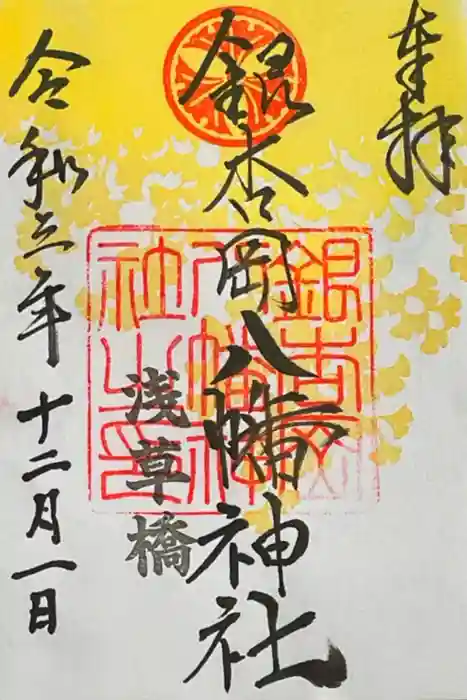 奉拝
銀杏岡八幡神社
浅草橋
令和三年十二月一日
銀杏岡
八幡神
社之印